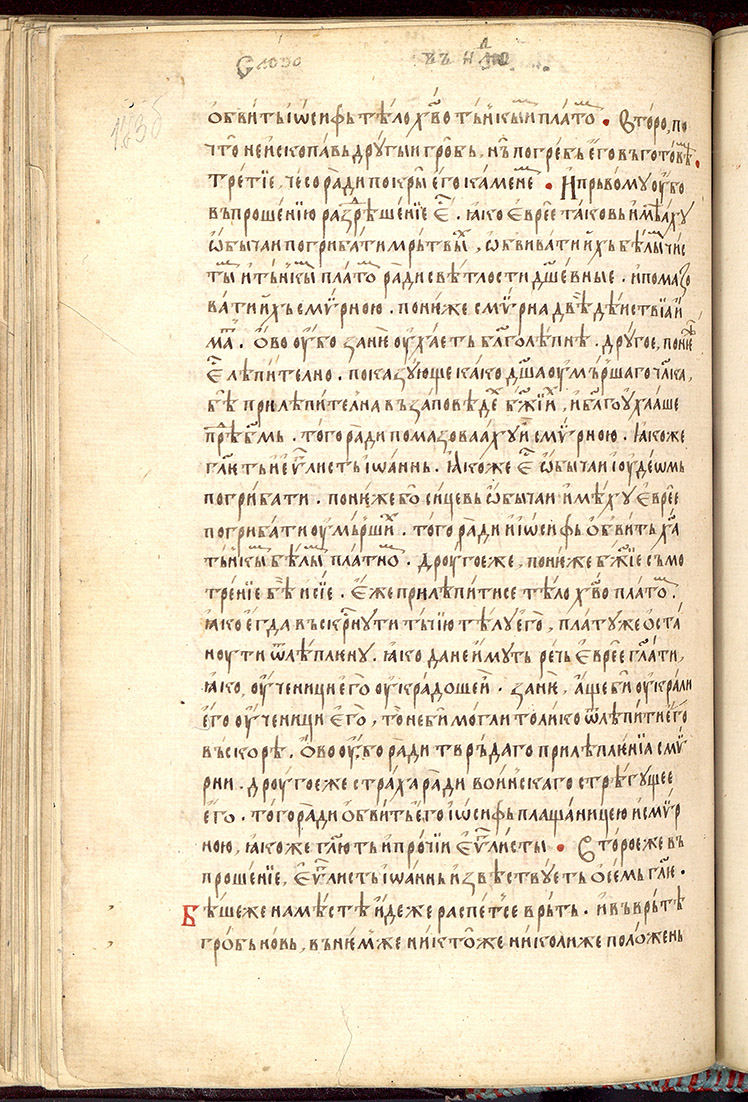 Слово въ н҃
183б
ѻбви́ть і҆ѡ́сифь тѣ́ло хв҃о тъ́нкыи плато́ . Вто́ро, по
что̀ не и҆скопа́вь дрꙋ́гыи гро́бь, нъ̀ погре́бь є҆го̀ въ гото́вѣ .
тре́тїе, чесо̀ ра́ди покры̀ є҆го̀ ка́мене . И҆ пръ́вомꙋ ᲂу҆́бо
въпроше́нїю разрѣше́нїе є҆́с҃ . ꙗ҆́ко є҆вре́є тако́вь и҆мѣ́ахꙋ
ѡ҆бы́чаи погриба́ти мрь́твы̏х , ѡ҆бвива́ти и҆́хъ бѣ́лы чи́с
ты и҆ тъ́нкы плато́ ра́ди свѣ́тлости дш҃е́вные . и҆ пома́зо
ва́ти и҆́хъ смѵ́рною . пони́же смѵ́рна двѣ̀ дѣ́иствїа и҆
ма́т . Ѻ҆́во ᲂу҆́бо занѐ ᲂу҆ха́еть бл҃голѣ́пнѣ . дрꙋго́е, пони́же
є҆́с҃ лѣпи́телно . показꙋ́юще ка́ко дш҃а ᲂу҆мръ́шаго чл҃ка,
бѣ̀ прилѣпи́телна въ за́повѣдех бж҃їих , и҆ бл҃гоᲂу҆ха́аше
пре́д бг҃мь . того̀ ра́ди помазова́ахꙋ и҆̀ смѵ́рною . ꙗ҆́коже
гл҃ть и҆ є҆ѵ҃листь і҆ѡа́ннь . Ꙗ҆́коже є҆́с҃ ѡ҆бы́чаи і҆ᲂуде́ѡмь
погриба́ти . пони́же бо̀ си́цевь ѡ҆бы́чаи и҆мѣ́хꙋ є҆вре́є
погриба́ти ᲂу҆мъ́ршїих . того̀ ра́ди и҆ і҆ѡ́сифь ѻ҆бви́ть х҃а
тъ́нкы бѣ́лы пла́тно . дрᲂуго́еже, пони́же бж҃їе съмо
тре́нїе бѣ̀ и҆ сїѐ . є҆́же прилѣпи́тисе тѣ́лᲂу хв҃ᲂу плато́ .
ꙗ҆́ко є҆гда̀ въскр҃нꙋти ты́чїю тѣ́лꙋ є҆го̀ , пла́тꙋже ѻ҆ста́
нᲂути ѿлѣ́пленꙋ . ꙗ҆́ко да не и҆́мꙋть ре́чь є҆вре́є гл҃ати ,
ꙗ҆́ко, ᲂу҆ченици є҆го̀ ᲂу҆кра́дошеи . занѐ , а҆́ще бы̀ ᲂу҆кра́ли
є҆го̀ ᲂу҆ченици є҆го̀ , то̀ не бы̀ моглѝ толи́ко ѿлѣпи́ти є҆го̀
въско́рѣ . Ѻ҆́во ᲂу҆́бо ра́ди твръ́даго прилѣпле́нїа смѵ́
рни . дрᲂуго́еже стра́ха ра́ди во́инскаго стрѣгꙋ́щее
є҆го̀ . того̀ ра́ди ѻ҆бви́ть є҆го̀ і҆ѡ́сифь плаща́ницею и҆ смѵ́р
ною, ꙗ҆́коже гл҃ють и҆ про́чїи є҆ѵ҃ли́сты . Вто́роеже въ
проше́нїе, є҆ѵ҃ли́сть і҆ѡа́ннь и҆звѣ́ствꙋеть ѻ҆ се́мь гл҃ю .
Бѣ́шеже на мѣ́стѣ и҆де́же распе́тсе врь́ть . и҆ въ врь́тѣ
гро́бь но́вь, въ не́мже никто́же николи́же поло́жень